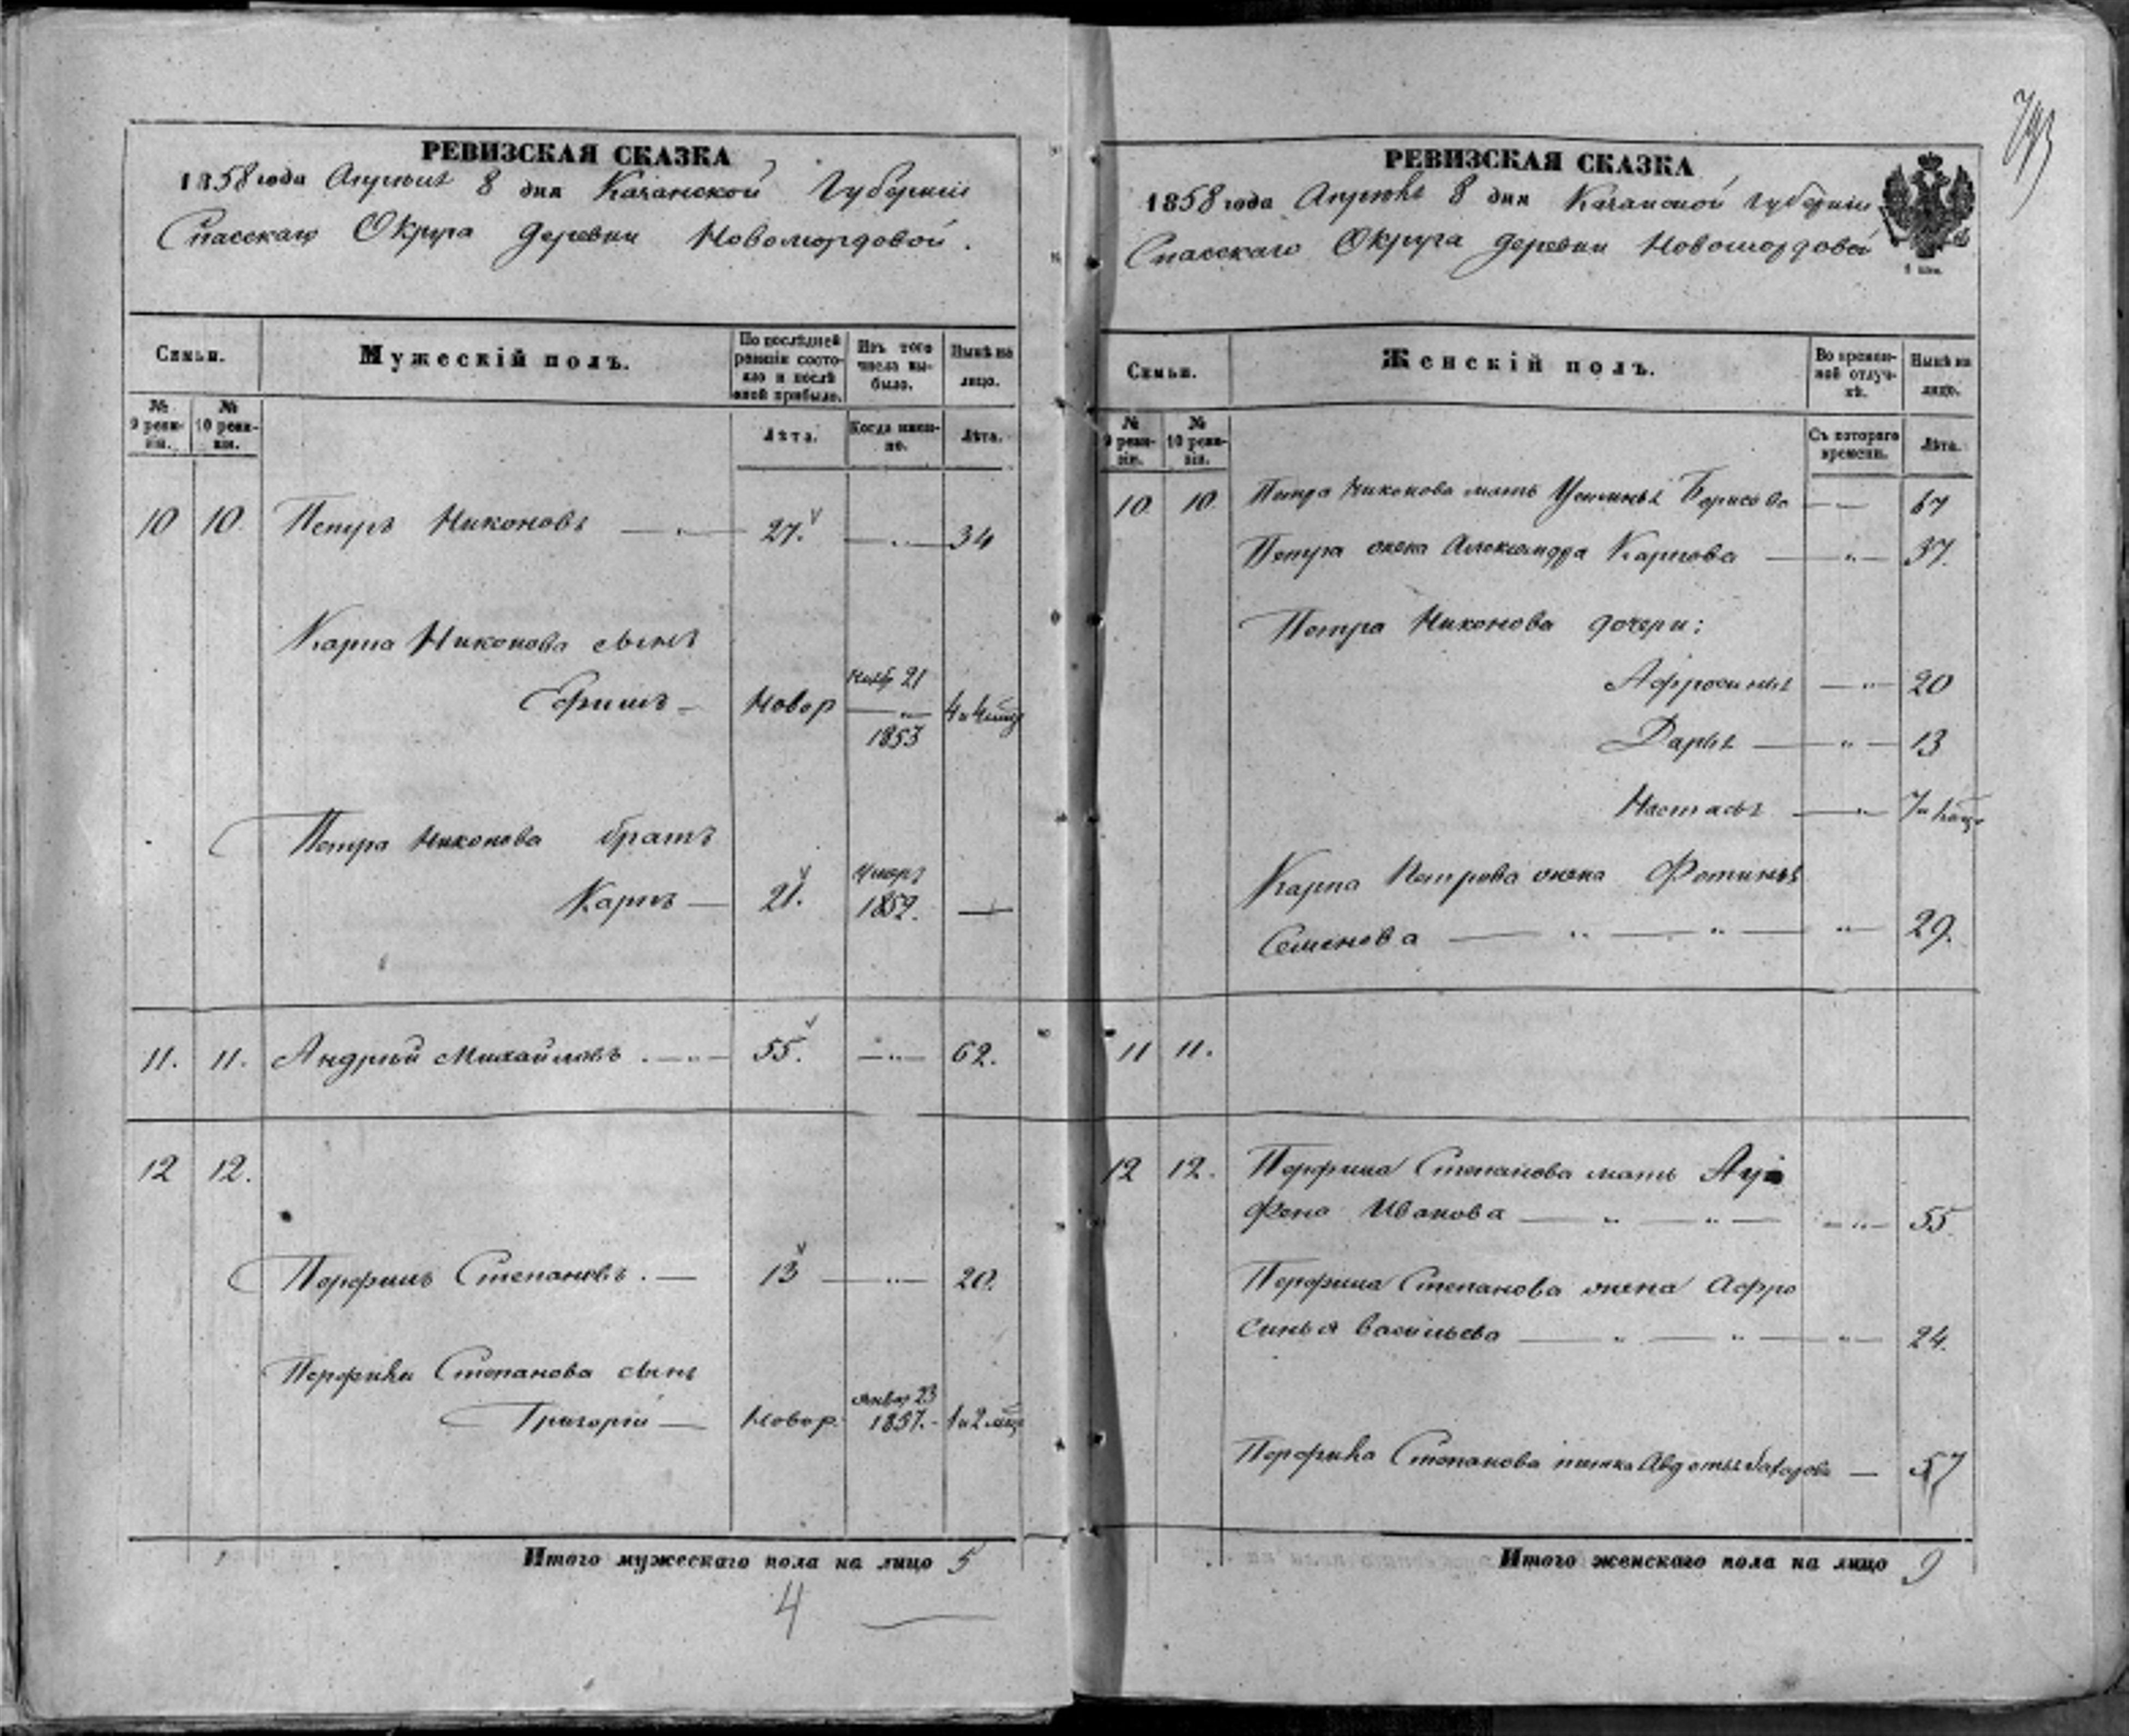 РЕВИЗСКАЯ СКАЗКА
1858 года Апрѣля 8 дня Казанской Губерніи
Спасскаго Округа деревни Новомордовой.
Семьи.
Мужескій полъ.
По послѣдней ревизіи состояло и послѣ оной прибыло.
Изъ того числа выбыло.
Нынѣ на лицо.
№ 9 ревизіи.
№ 10 ревизіи.
Лѣта.
Когда именно.
Лѣта.
10 10. Петръ Никоновъ 27. 34
Карпа Никонова сынъ
Ефимъ Новор 21 1853 4 и 4
Петра Никонова братъ
Карпъ 21. Умеръ 1852.
11. 11. Андрей Михайловъ 55. 62.
12 12.
Порфиръ Степановъ 13 20.
Степанова сынъ
Григорій Новор. Январ 23 1857. 1 и 2 мѣс
Итого мужескаго пола на лицо 5
4
793
РЕВИЗСКАЯ СКАЗКА
1858 года Апрѣля 8 дня Казанской Губерніи
Спасскаго Округа деревни Новомордовой
Семьи.
Женскій полъ.
Во временной отлучкѣ.
Нынѣ на лицо.
№ 9 ревизіи.
№ 10 ревизіи.
Съ котораго времени.
Лѣта.
10. 10. Петра Никонова мать Устинья Борисова 67
Петра жена Александра Карпова 37.
Петра Никонова дочери:
Афросинья 20
Дарья 13
Настасья 7 и
Карпа Петрова жена Фотинья
Семенова 29.
11 11.
12 12. Степанова мать
Иванова 55
Степанова жена Афро
синья Васильева 24.
Степанова тетка Авдотья 57
Итого женскаго пола на лицо 9